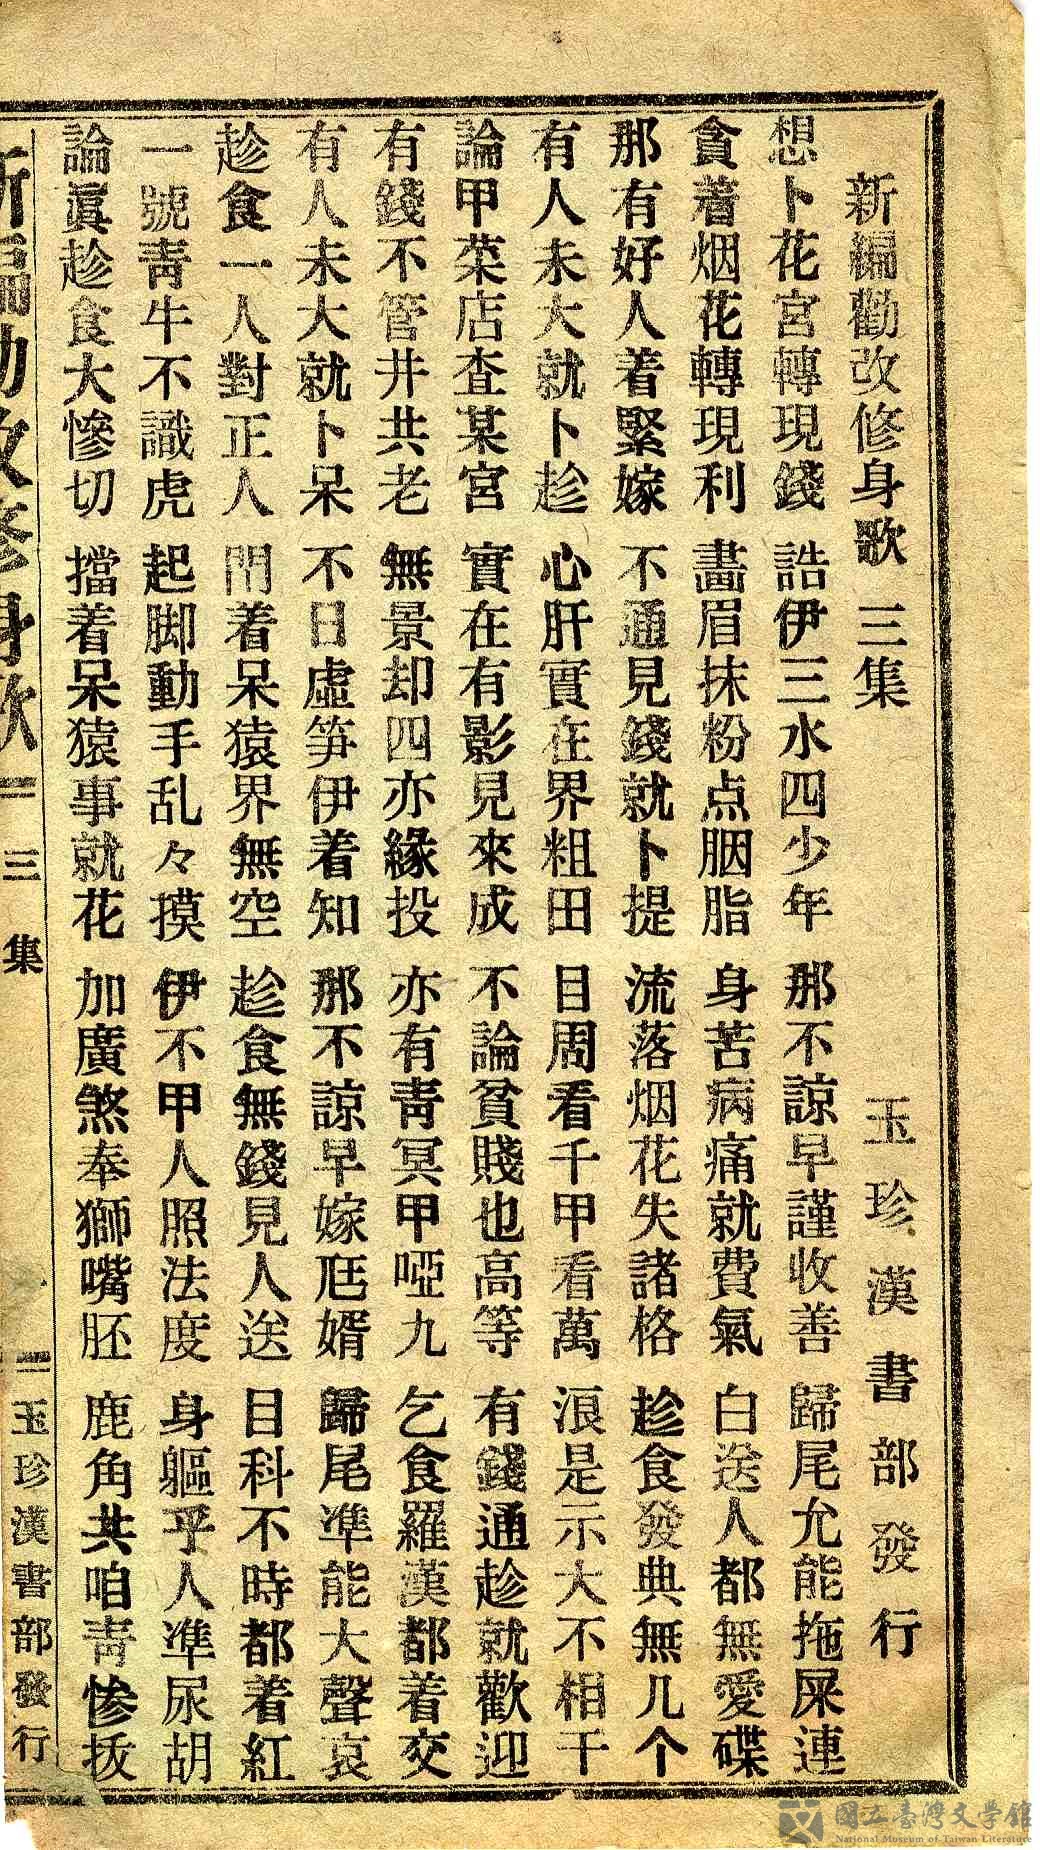 新編勸改修身歌 三集 玉珍漢書部發行
想卜花宮轉現錢 誥伊三水四少年 那不諒早謹收善 歸尾允能拖屎連
貪着烟花轉現利 畫眉抹粉点胭脂 身苦病痛就費氣 白送人都無愛碟
那有好人着緊嫁 不通見錢就卜提 流落烟花失諸格 趁食發典無几个
有人未大就卜趁 心肝實在界粗田 目周看千甲看萬 浪是示大不相干
論甲菜店查某宮 實在有影見來成 不論貧賤也高等 有錢通趁就歡迎
有錢不管井共老 無景却四亦緣投 亦有靑冥甲啞九 乞食羅漢都着交
有人未大就卜呆 不日虛笋伊着知 那不諒早嫁尪婿 歸尾準能大聲哀
趁食一人對正人 閗着呆猿界無空 趁食無錢見人送 目科不時都着紅
一號靑牛不識虎 起脚動手乱々摸 伊不甲人照法度 身軀乎人準尿胡
論眞趁食大慘切 擋着呆猿事就花 加廣煞奉獅嘴胚 鹿角共咱靑慘拔
新編勸改修身歌 三集 玉珍漢書部發行
國立臺灣文學館
National Museum of Taiwan Literature